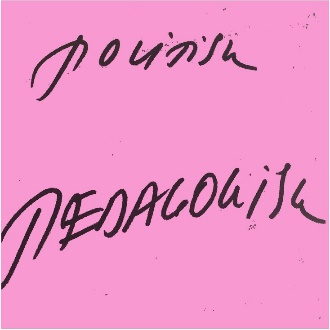 POLITISK
PÆDAGOGISK